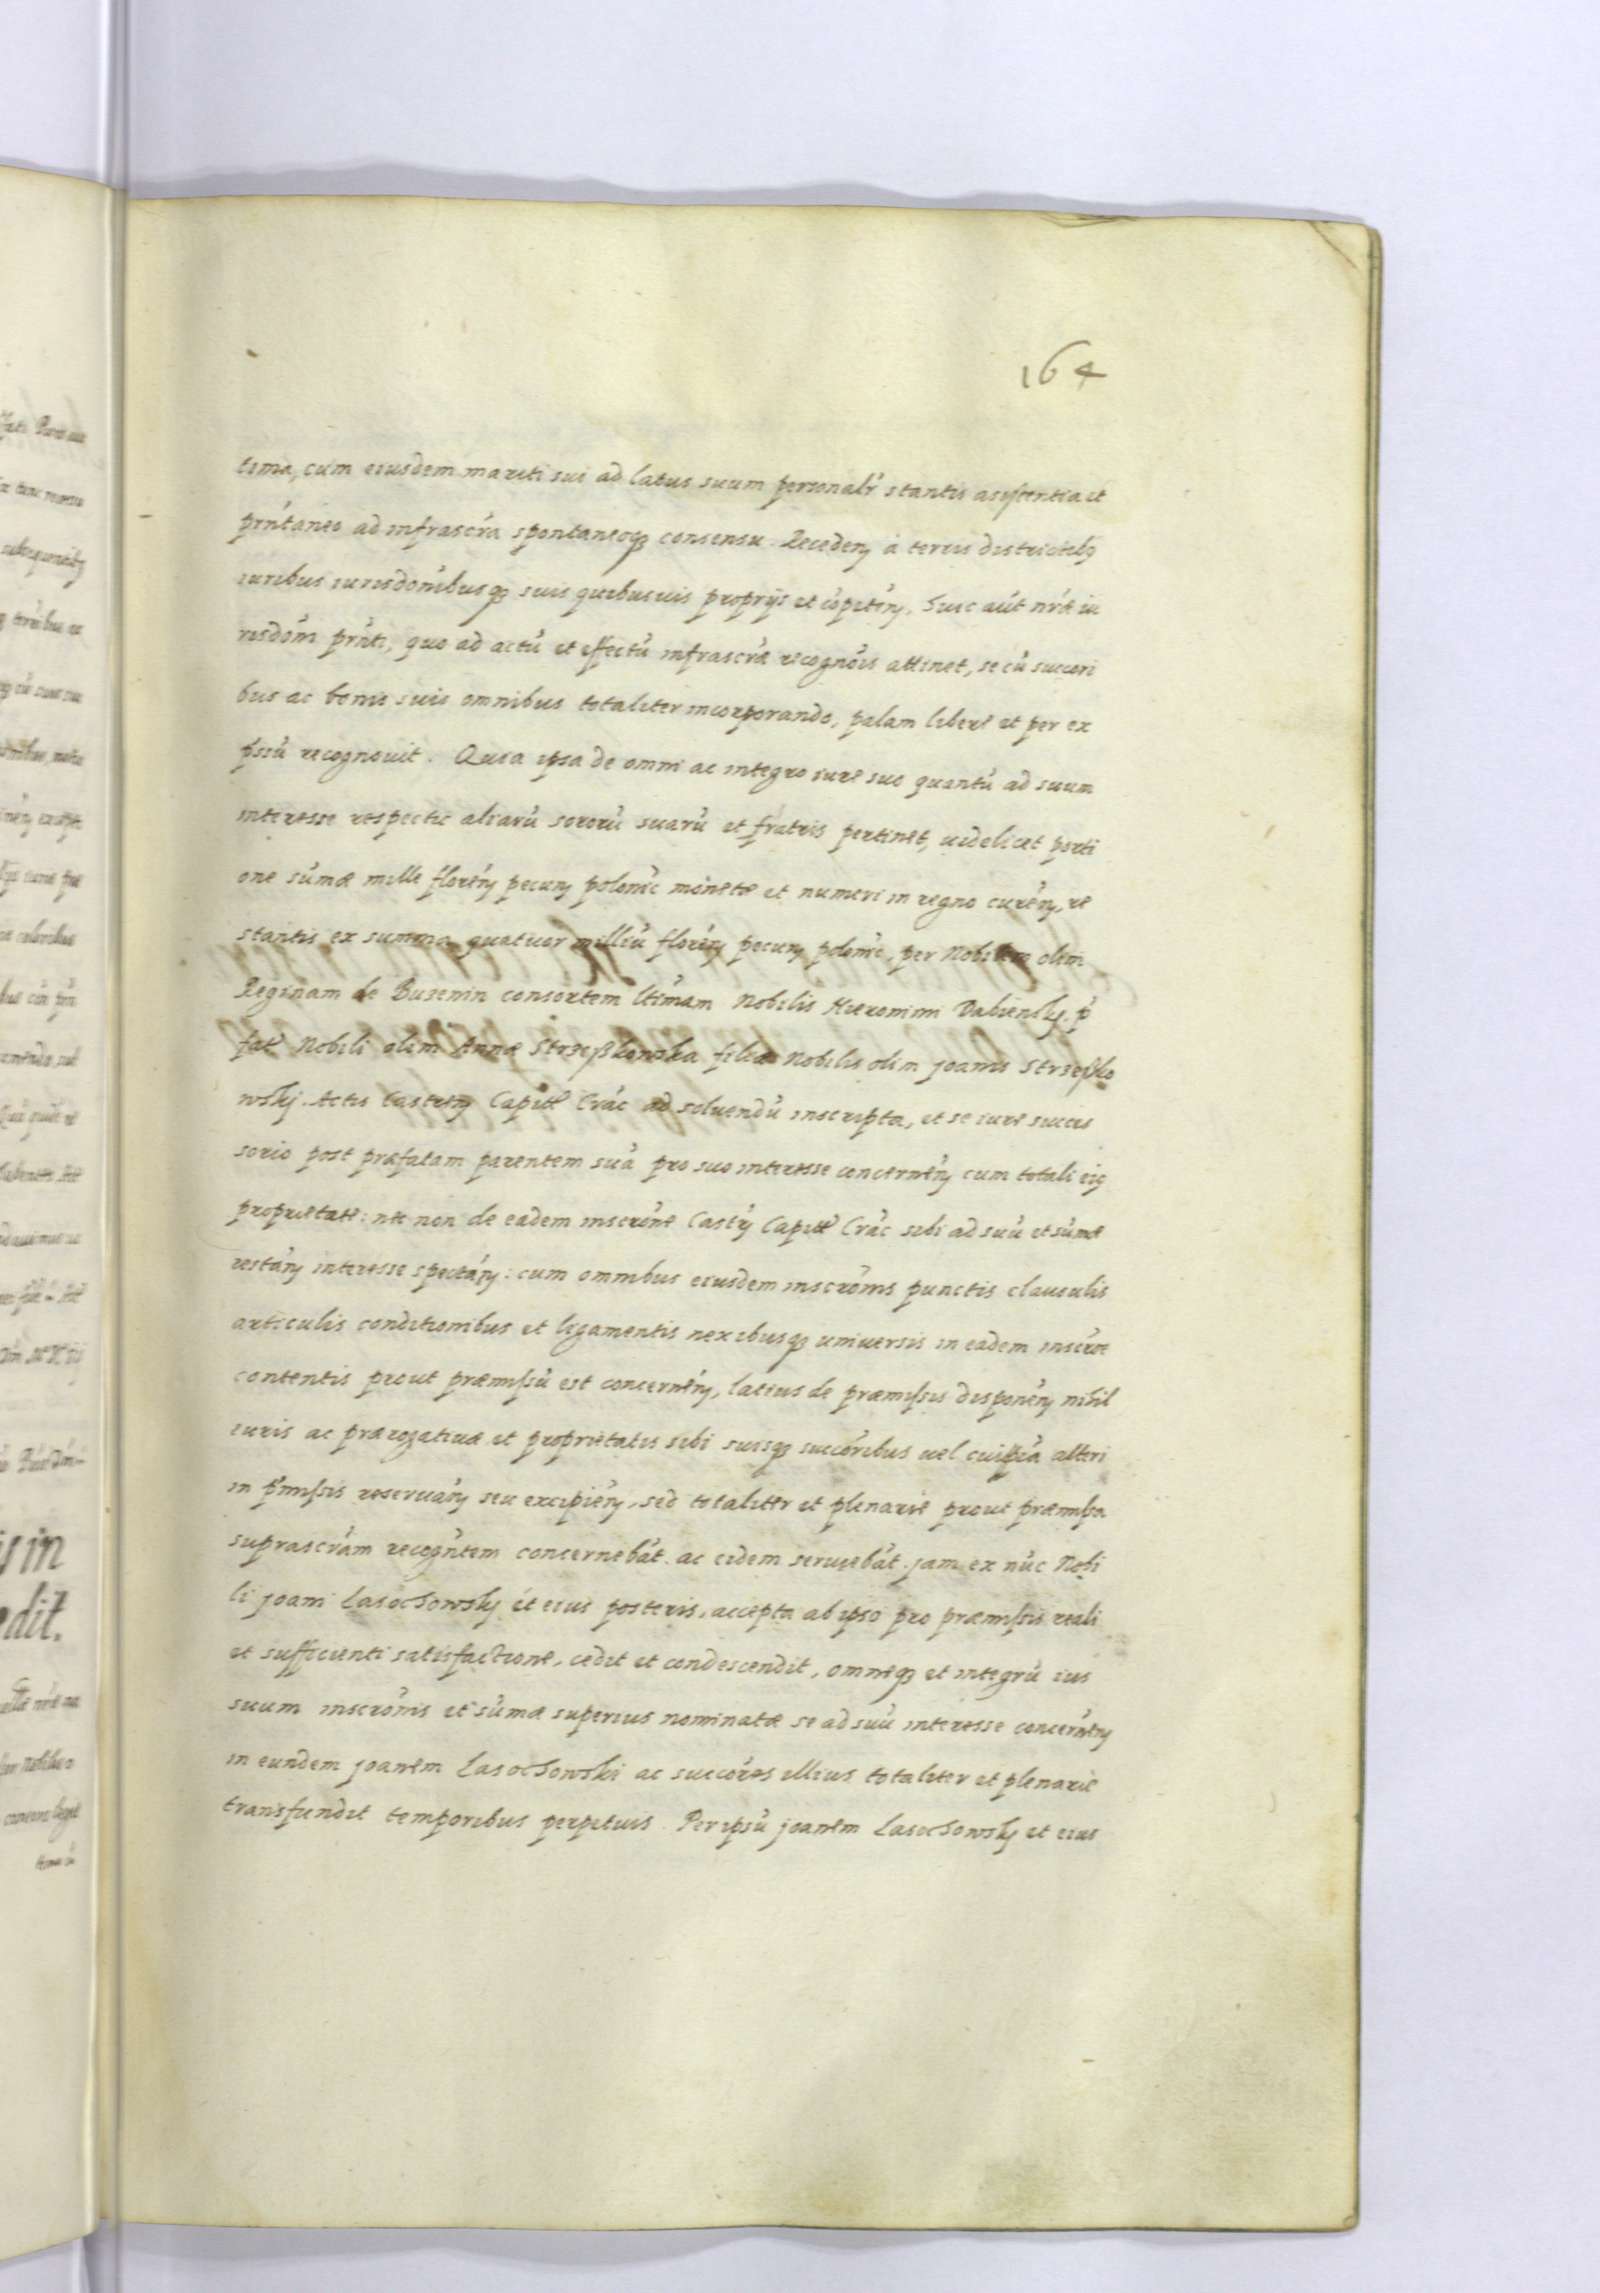 164
tima, cum eiusdem mariti sui ad latus suum personalr stantis assistentia et
prntaneo ad infrascra spontaneoq3 consensu. Recedeń à terris districtibq
iuribus iurisdonibusq3 suis quibusuis proprijs et copeteń, huic aūt nrae iu
risdom prnti, quo ad actū et effectū infrascrae recognois attinet, se cū succori
bus ac bonis suis omnibus totaliter incorporando, palam libere et per ex
pssū recognouit. Quia ipsa de omni ac integro iure suo quantū ad suum
interesse respectu aliarū sororū suarū et fratris pertinet, uidelicet porti
one sūmae mille floreń pecuń polonic monetae et numeri in regno cureń, re
stantis ex summa quatuor milliū floreń pecuń polonic, per Nobilem olim
Reginam de Buzenin consortem ltimam Nobilis Hieronimi Dabiensky. p
fat Nobili olim Annae Strzeßkowska filiae Nobilis olim Joanis Strzeßko
wskj. Actis Castreń Capitl Crac ad soluendū inscripta, et se iure succes
sorio post praefatam parentem suā pro suo interesse concerneń cum totali eiq
proprietate: nec non de eadem inscrone Castrń Capitl Crac sibi ad suū et sūmae
restań interesse spectań: cum omnibus eiusdem inscronis punctis clausulis
articulis conditionibus et ligamentis nexibusq3 uniuersis in eadem inscroe
contentis prout praemissū est concerneń, latius de praemissis disponeń nihil
iuris ac praerogatiuae et proprietatis sibi suisq3 succoribus uel cuipiā alteri
in pmissis reseruań seu excipień, sed totaliter et plenarie prout praemissa
suprascram recogntem concernebāt. ac eidem seruiebāt. jam ex nūc Nobi
li Joani Lasochowskj et eius posteris, accepta ab ipso pro praemissis reali
et sufficienti satisfactione, cedit et condescendit, omneq3 et integrū ius
suum inscronis et sūmae superius nominatae se ad suū interesse concerneń
in eundem Joanem Lasochowski ac succores illius totaliter et plenarie
transfundit temporibus perpetuis. Per ipsū Joanem Lasochowskj et eius